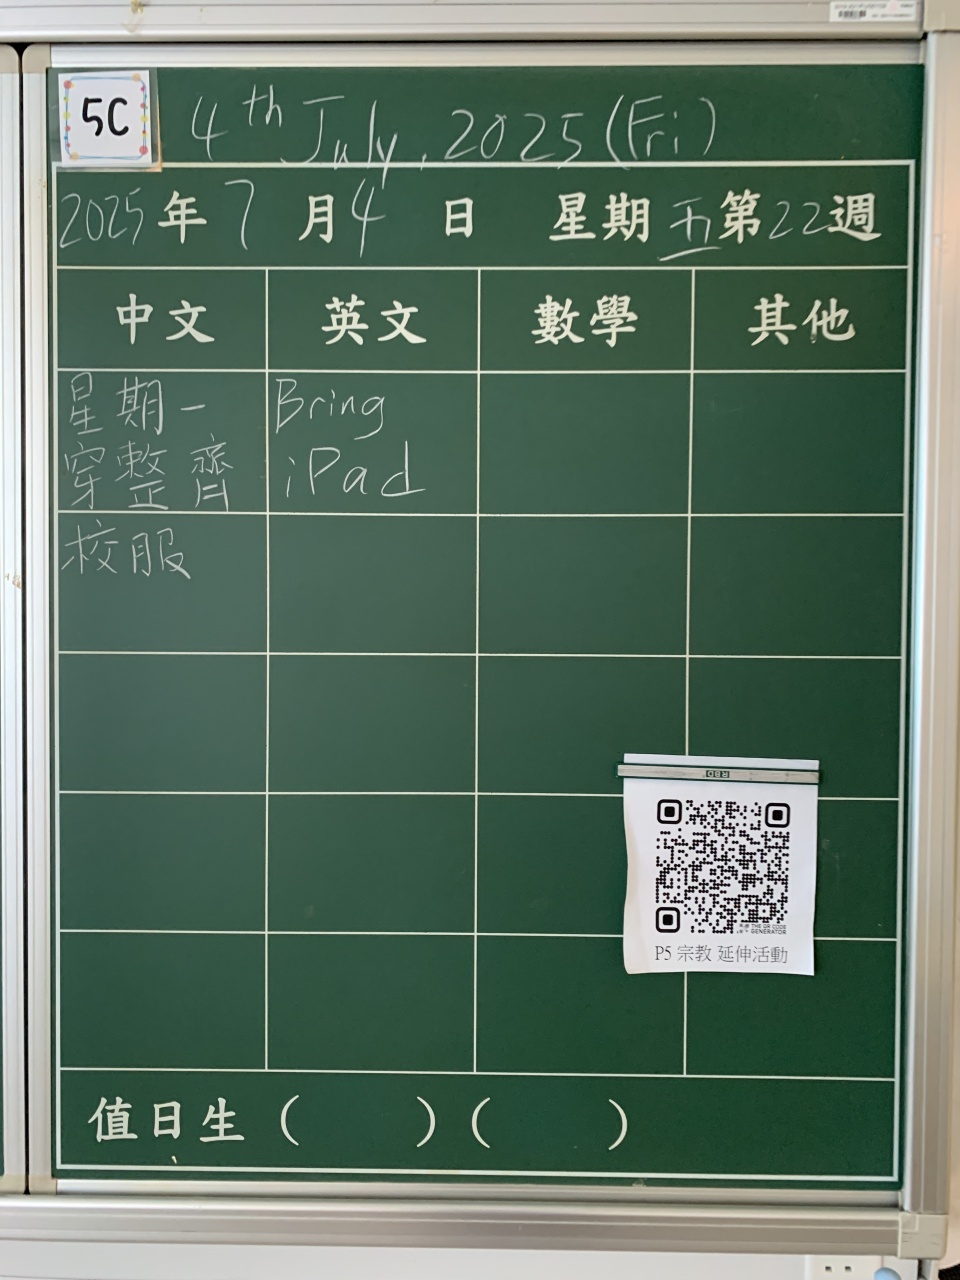 5C
4th July, 2025 (Fri)
2025年7月4日 星期五 第22週
中文 英文 數學 其他
星期一 Bring
穿整齊 iPad
校服
THE QR CODE
GENERATOR
P5 宗教 延伸活動
值日生 ( ) ( )